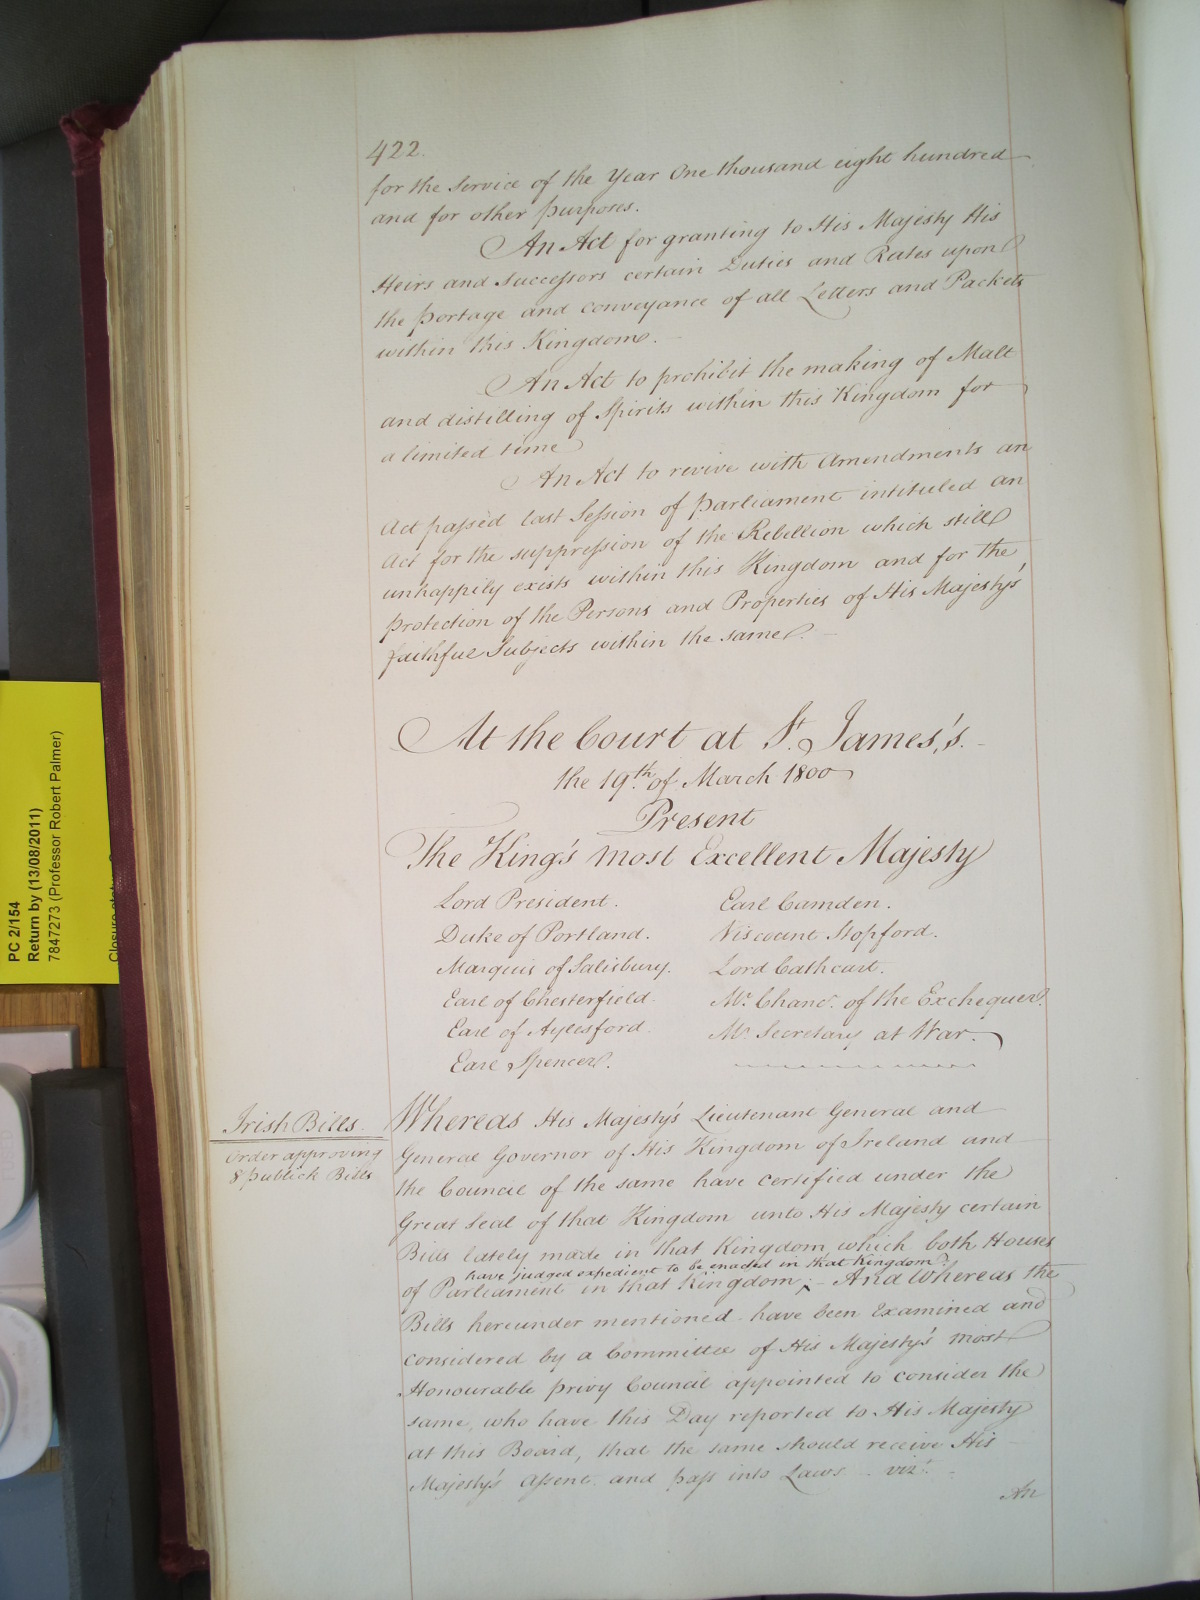 422.
for the Service of the Year One thousand eight hundred
and for other purposes.
An Act for granting to His Majesty His
Heirs and Successors certain Duties and Rates upon
the portage and conveyance of all Letters and Packets
within this Kingdom.
An Act to prohibit the making of Malt
and distilling of Spirits within this Kingdom for
a limited time
An Act to revive with Amendments an
Act passed last Session of parliament intituled an
Act for the suppression of the Rebellion which still
unhappily exists within this Kingdom and for the
protection of the Persons and Properties of His Majesty's
faithful Subjects within the same.
At the Court at St. James's.
the 19th. of March 1800
Present
The King's most Excellent Majesty
Lord President. Earl Camden.
Duke of Portland. Viscount Stopford.
Marquis of Salisbury. Lord Cathcart.
Earl of Chesterfield Mr. Chancr. of the Exchequer.
Earl of Aylesford Mr. Secretary at War.
Earl Spencer.
Irish Bills.
Order approving
8 publick Bills
Whereas His Majesty's Lieutenant General and
General Governor of His Kingdom of Ireland and
the Council of the same have certified under the
Great Seal of that Kingdom unto His Majesty certain
Bills lately made in that Kingdom, which both Houses
have judged expedient to be enacted in that Kingdom
of Parliament in that Kingdom; - And Whereas the
Bills hereunder mentioned have been Examined and
considered by a Committee of His Majesty's most
Honourable privy Council appointed to consider the
same, who have this Day reported to His Majesty
at this Board, that the same should receive His
Majesty's Assent and pass into Laws .. vizt.
An
PC 2/154
Return by (13/08/2011)
7847273 (Professor Robert Palmer)